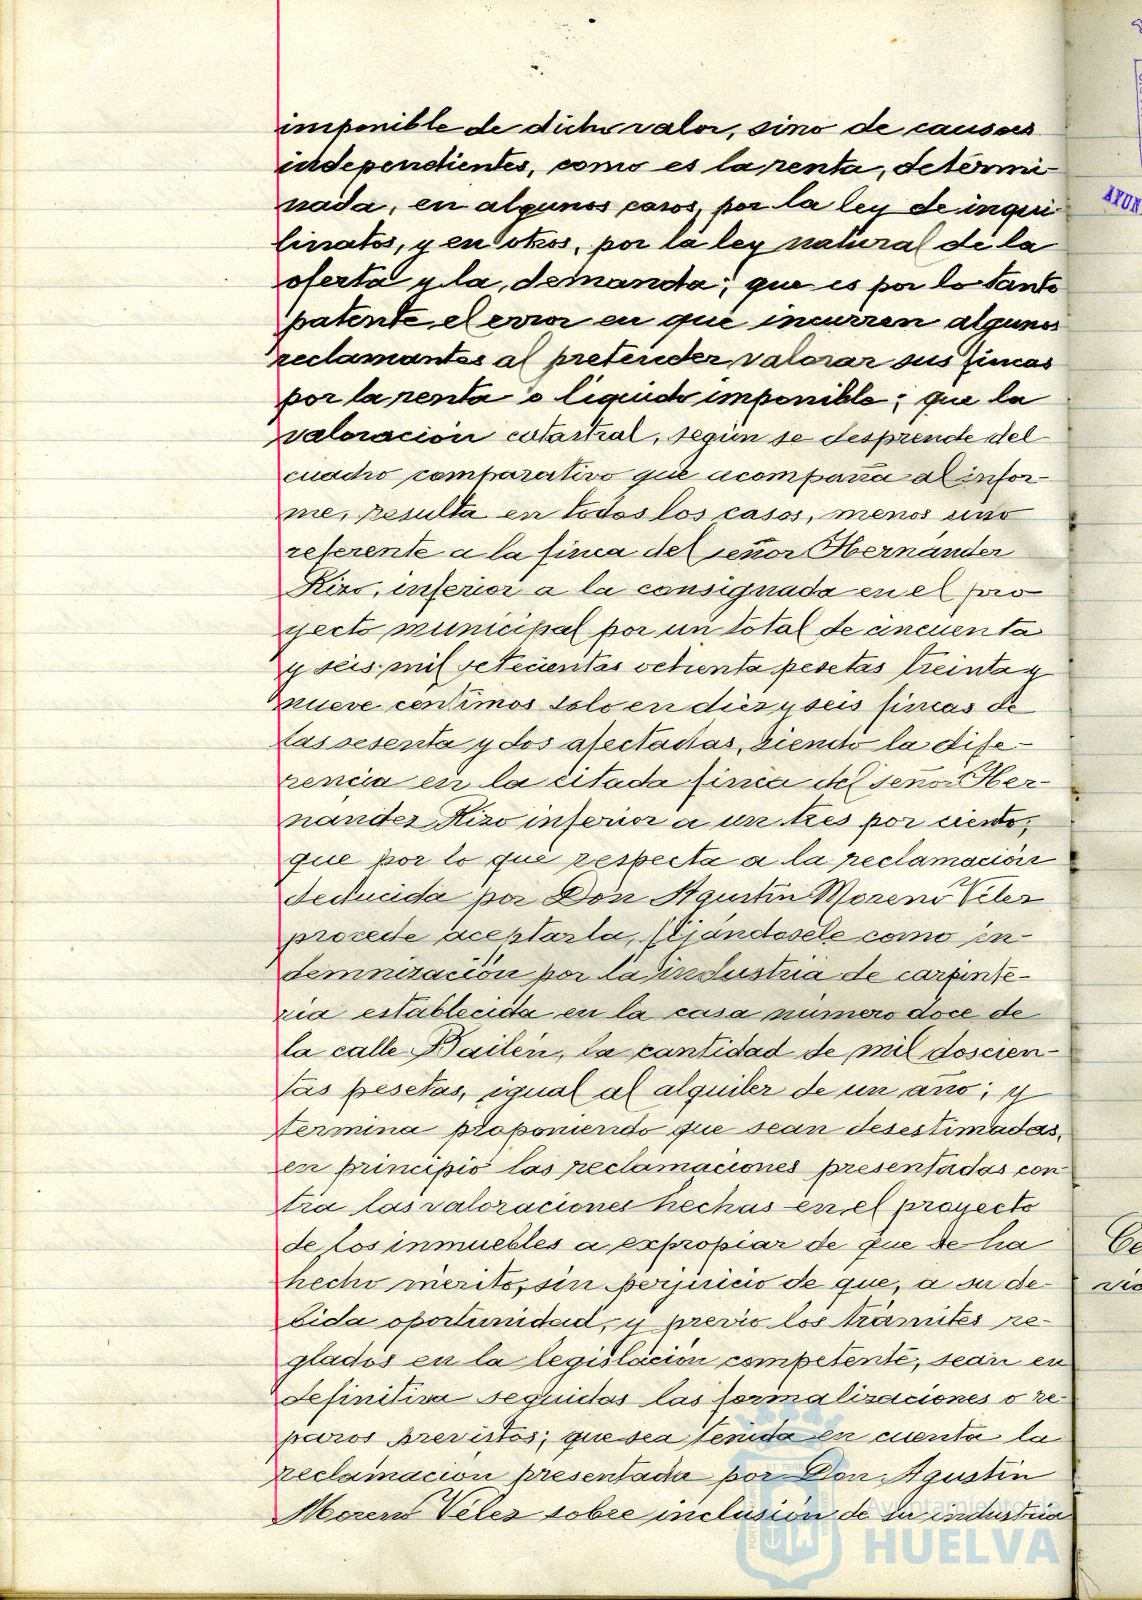 imponible de dicho valor, sino de causas
independientes, como es la renta, determi-
nada, en algunos casos, por la ley de inqui-
linatos, y en otros, por la ley natural de la
oferta y la demanda; que es por lo tanto
patente el error en que incurren algunos
reclamantes al pretender valorar sus fincas
por la renta o liquido imponible; que la
valoración catastral, según se desprende del
cuadro comparativo que acompaña al infor-
me, resulta en todos los casos, menos uno
referente a la finca del señor Hernández
Rizo, inferior a la consignada en el pro
yecto municipal por un total de cincuenta
y seis mil setecientas ochenta pesetas treinta y
nueve centimos solo en diez y seis fincas de
las sesenta y dos afectadas, siendo la dife-
rencia en la citada finca del señor Her-
nandez Rizo inferior a un tres por ciento;
que por lo que respecta a la reclamación
deducida por Don Agustin Moreno Velez
procede aceptarla, fijándosele como in-
demnización por la industria de carpinte-
ria establecida en la casa número doce de
la calle Bailén, la cantidad de mil doscien-
tas pesetas, igual al alquiler de un año; y
termina proponiendo que sean desestimadas,
en principio las reclamaciones presentadas con
tra las valoraciones hechas en el proyecto
de los inmuebles a expropiar de que se ha
hecho mérito, sin perjuicio de que, a su de-
bida oportunidad, y previo los trámites re-
glados en la legislación competente, sean en
definitiva seguidas las formalizaciones o re-
paros previstos; que sea tenida en cuenta la
reclamación presentada por Don Agustin
Moreno Velez sobre inclusión de su industria
Ayuntamiento de
HUELVA